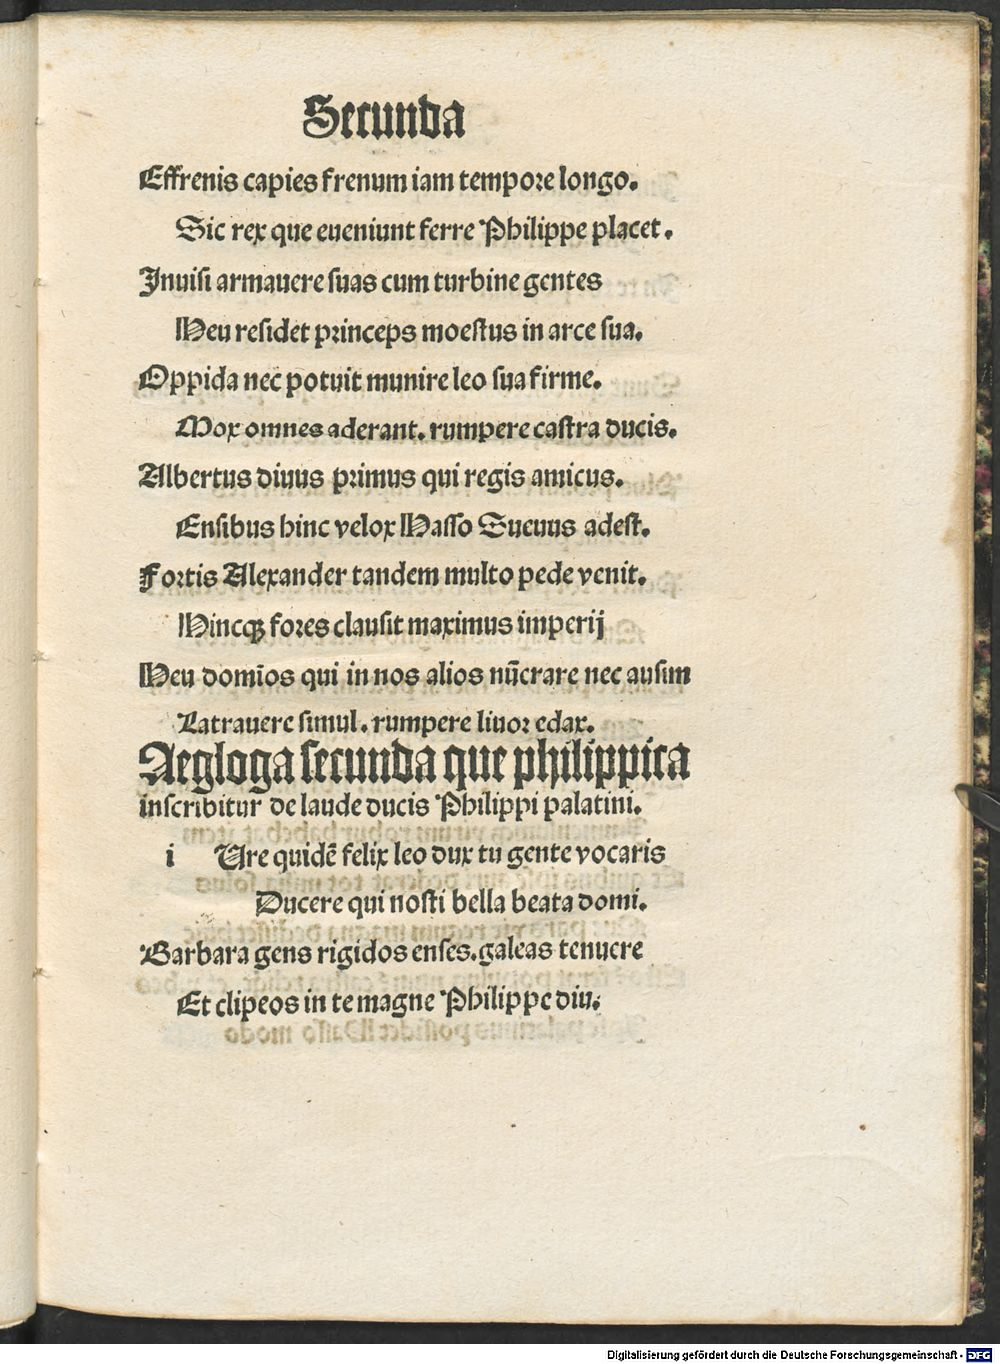 Secunda
Effrenis capies frenum iam tempore longo.
Sic rex que eueniunt ferre Philippe placet.
Inuisi armauere suas cum turbine gentes
Heu residet princeps moestus in arce sua.
Oppida nec potuit munire leo sua firme.
Mox omnes aderant. rumpere castra ducis.
Albertus diuus primus qui regis amicus.
Ensibus hinc velox Hasso Sueuus adest.
Fortis Alexander tandem multo pede venit.
Hincqꝫ fores clausit maximus imperij
Heu domīos qui in nos alios nūcrare nec ausim
Latrauere simul. rumpere liuor edax.
Aegloga secunda que philippica
inscribitur de laude ducis Philippi palatini.
i Ure quidē felix leo dux tu gente vocaris
Ducere qui nosti bella beata domi.
Barbara gens rigidos enses. galeas tenuere
Et clipeos in te magne Philippe diu.
Digitalisierung gefördert durch die Deutsche Forschungsgemeinschaft - DFG